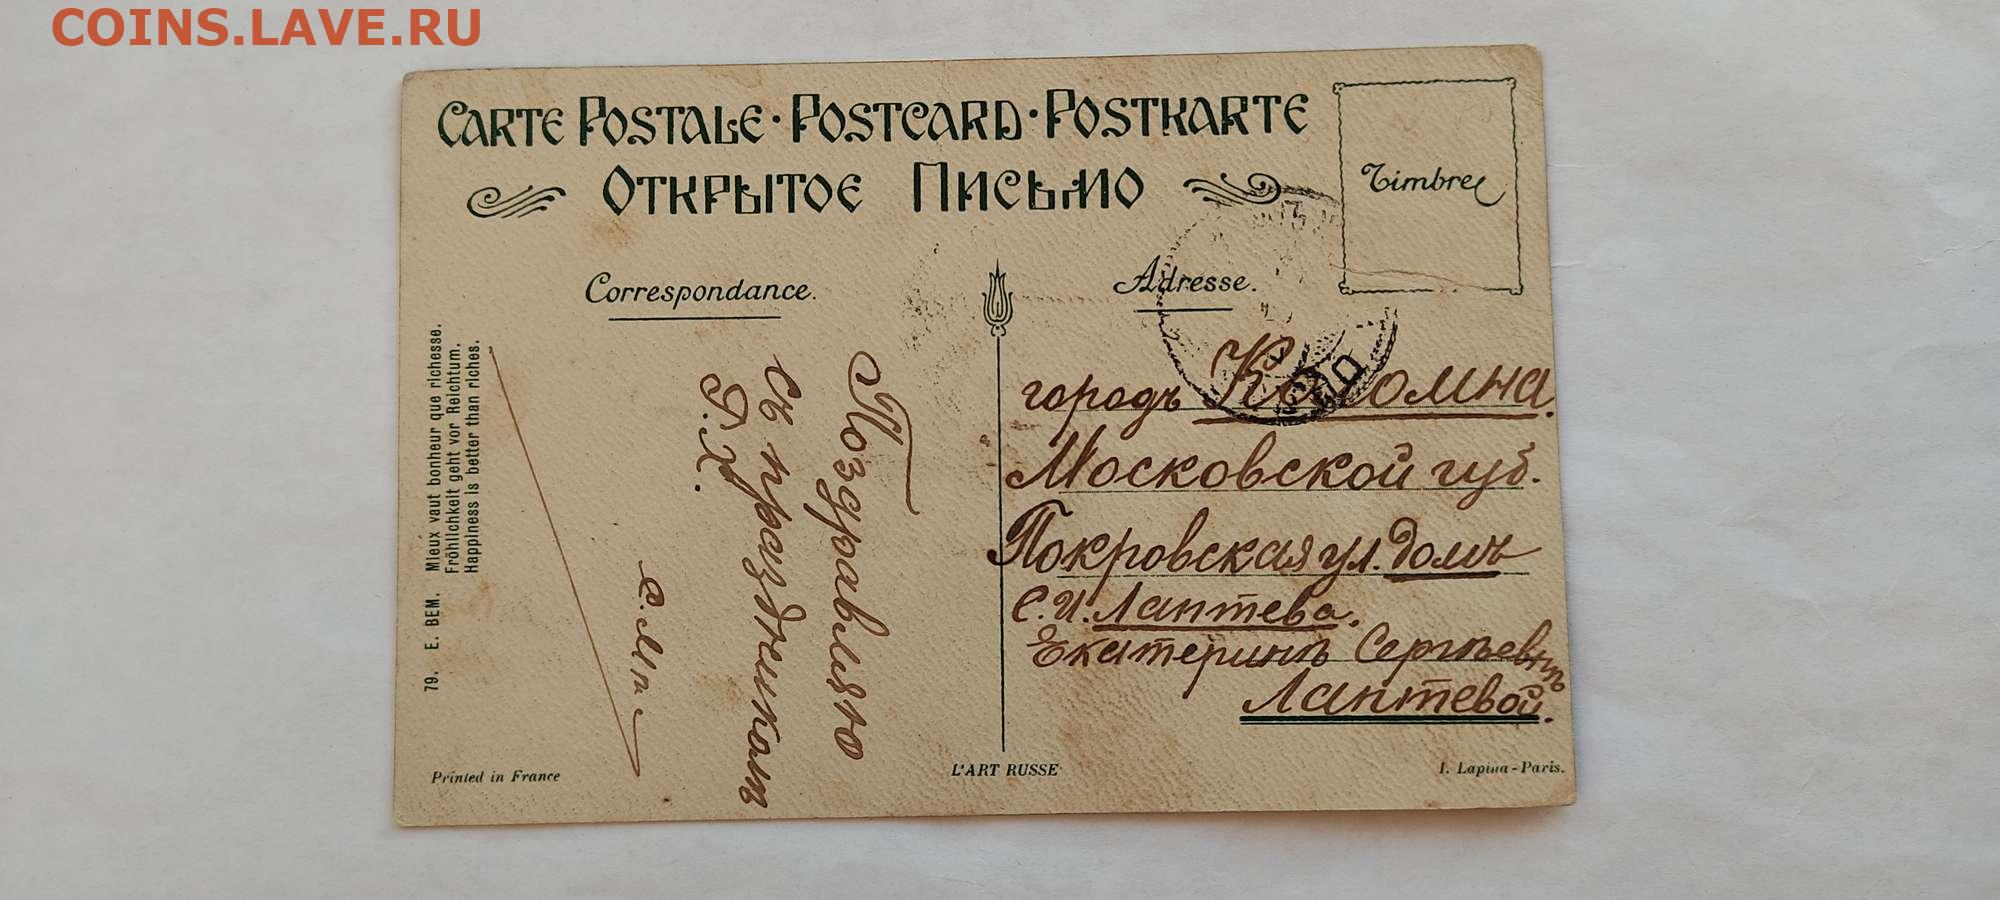 COINS.LAVE.RU
CARTE POSTALE · POSTCARD · POSTKARTE
ОТКРЫТОЕ ПИСЬМО
Timbre
Correspondance.
Adresse.
79. E. BEM. Mieux vaut bonheur que richesse.
Fröhlichkeit geht vor Reichtum.
Happiness is better than riches.
Поздравляю
съ праздникомъ
Р.Х.
городъ Коломна.
Московской губ.
Покровская ул. домъ
С.И. Лаптева.
Екатеринѣ Сергѣевнѣ
Лаптевой.
Printed in France
L'ART RUSSE
I. Lapina - Paris.